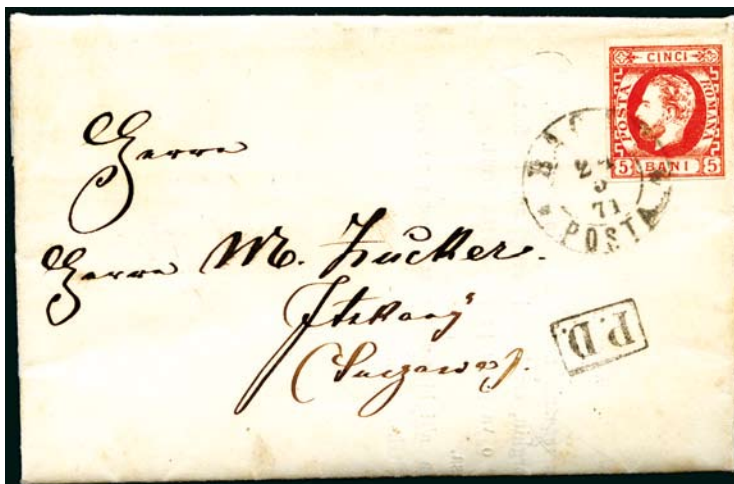 CINCI
POSTA ROMANA
5 BANI 5
71
POSTA
Herrn
Herrn M. Zucker.
Itzkany
(Suczawa).
P.D.